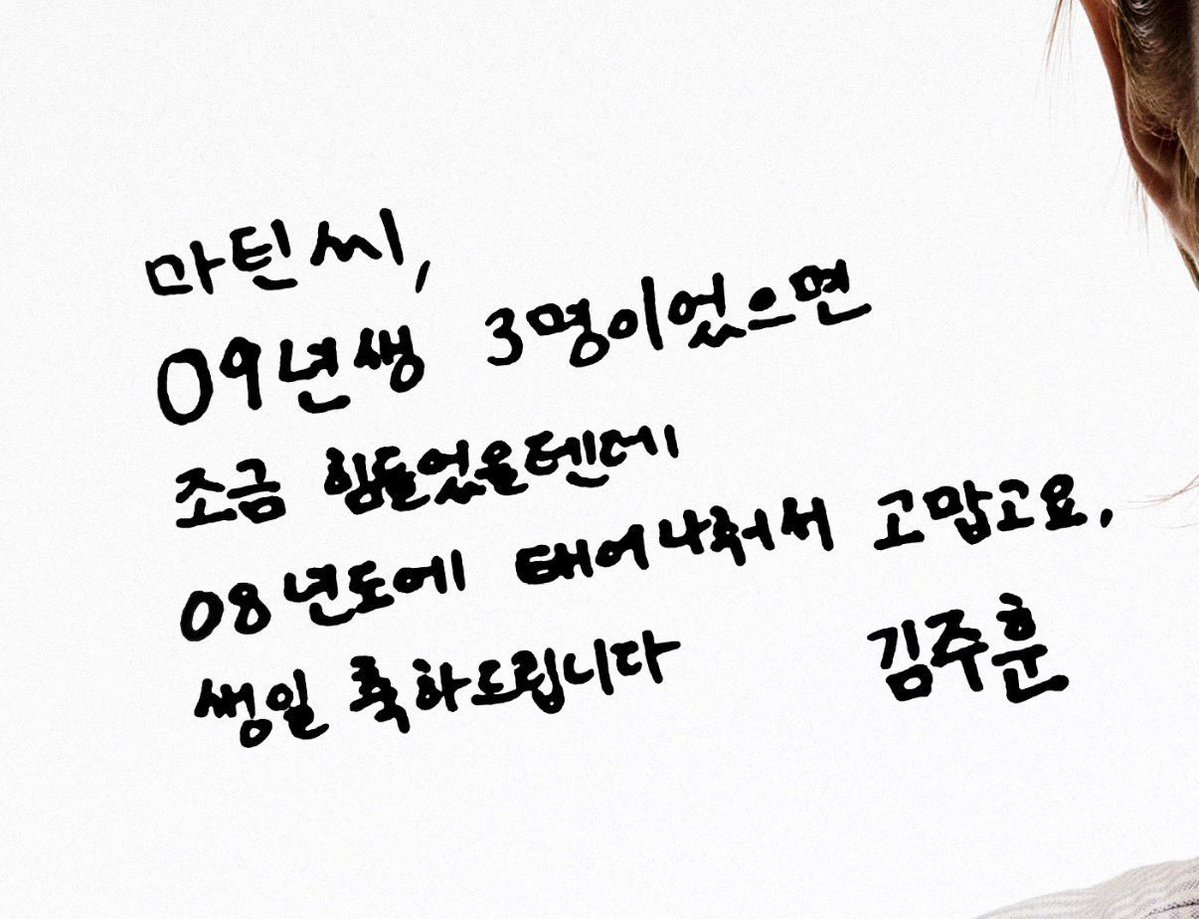 마틴씨,
09년생 3명이었으면
조금 힘들었을텐데
08년도에 태어나줘서 고맙고요.
생일 축하드립니다 김주훈